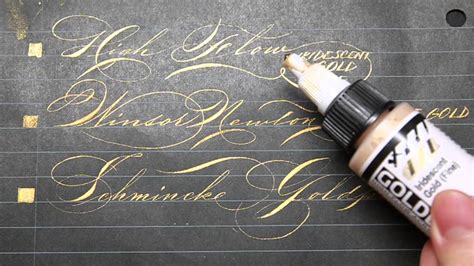 High Flow
IRIDESCENT
GOLD
Winsor Newton GOLD
Schmincke Gold
GOLD
Iridescent
Gold (Fine)